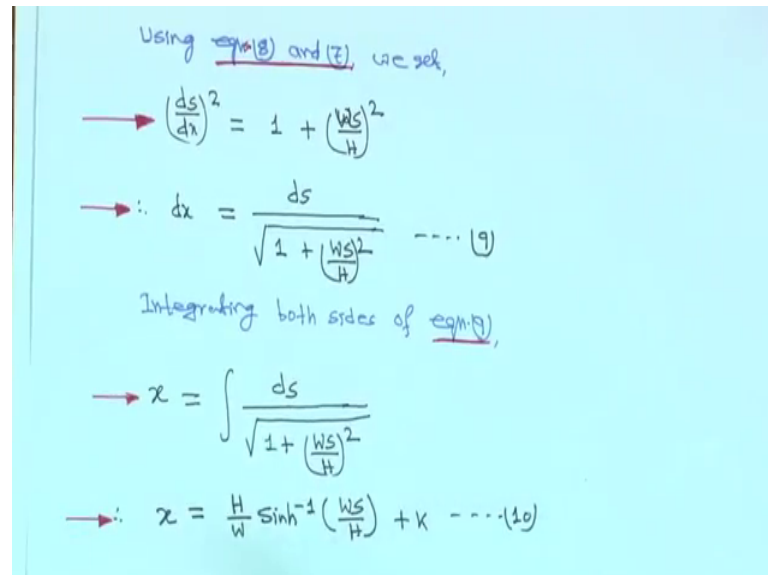 Using eqn.(8) and (7) we get,
→ (ds/dx)² = 1 + (WS/H)²
→ ∴ dx = ds / √(1 + (WS/H)²) ---- (9)
Integrating both sides of eqn.(9),
→ x = ∫ ds / √(1 + (WS/H)²)
→ ∴ x = H/W Sinh⁻¹ (WS/H) + K ----(10)